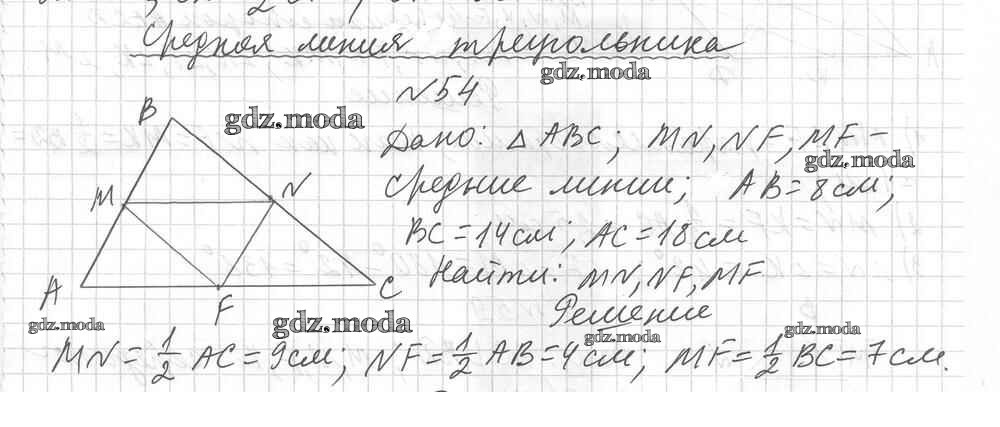 Средняя линия треугольника
gdz.moda
№54
B
gdz.moda
Дано: △ ABC; MN, NF, MF –
gdz.moda
M
N
средние линии; AB = 8 см;
BC = 14 см; AC = 18 см
A
F
C
Найти: MN, NF, MF
Решение
gdz.moda
gdz.moda
gdz.moda
gdz.moda
MN = 1/2 AC = 9 см; NF = 1/2 AB = 4 см; MF = 1/2 BC = 7 см.